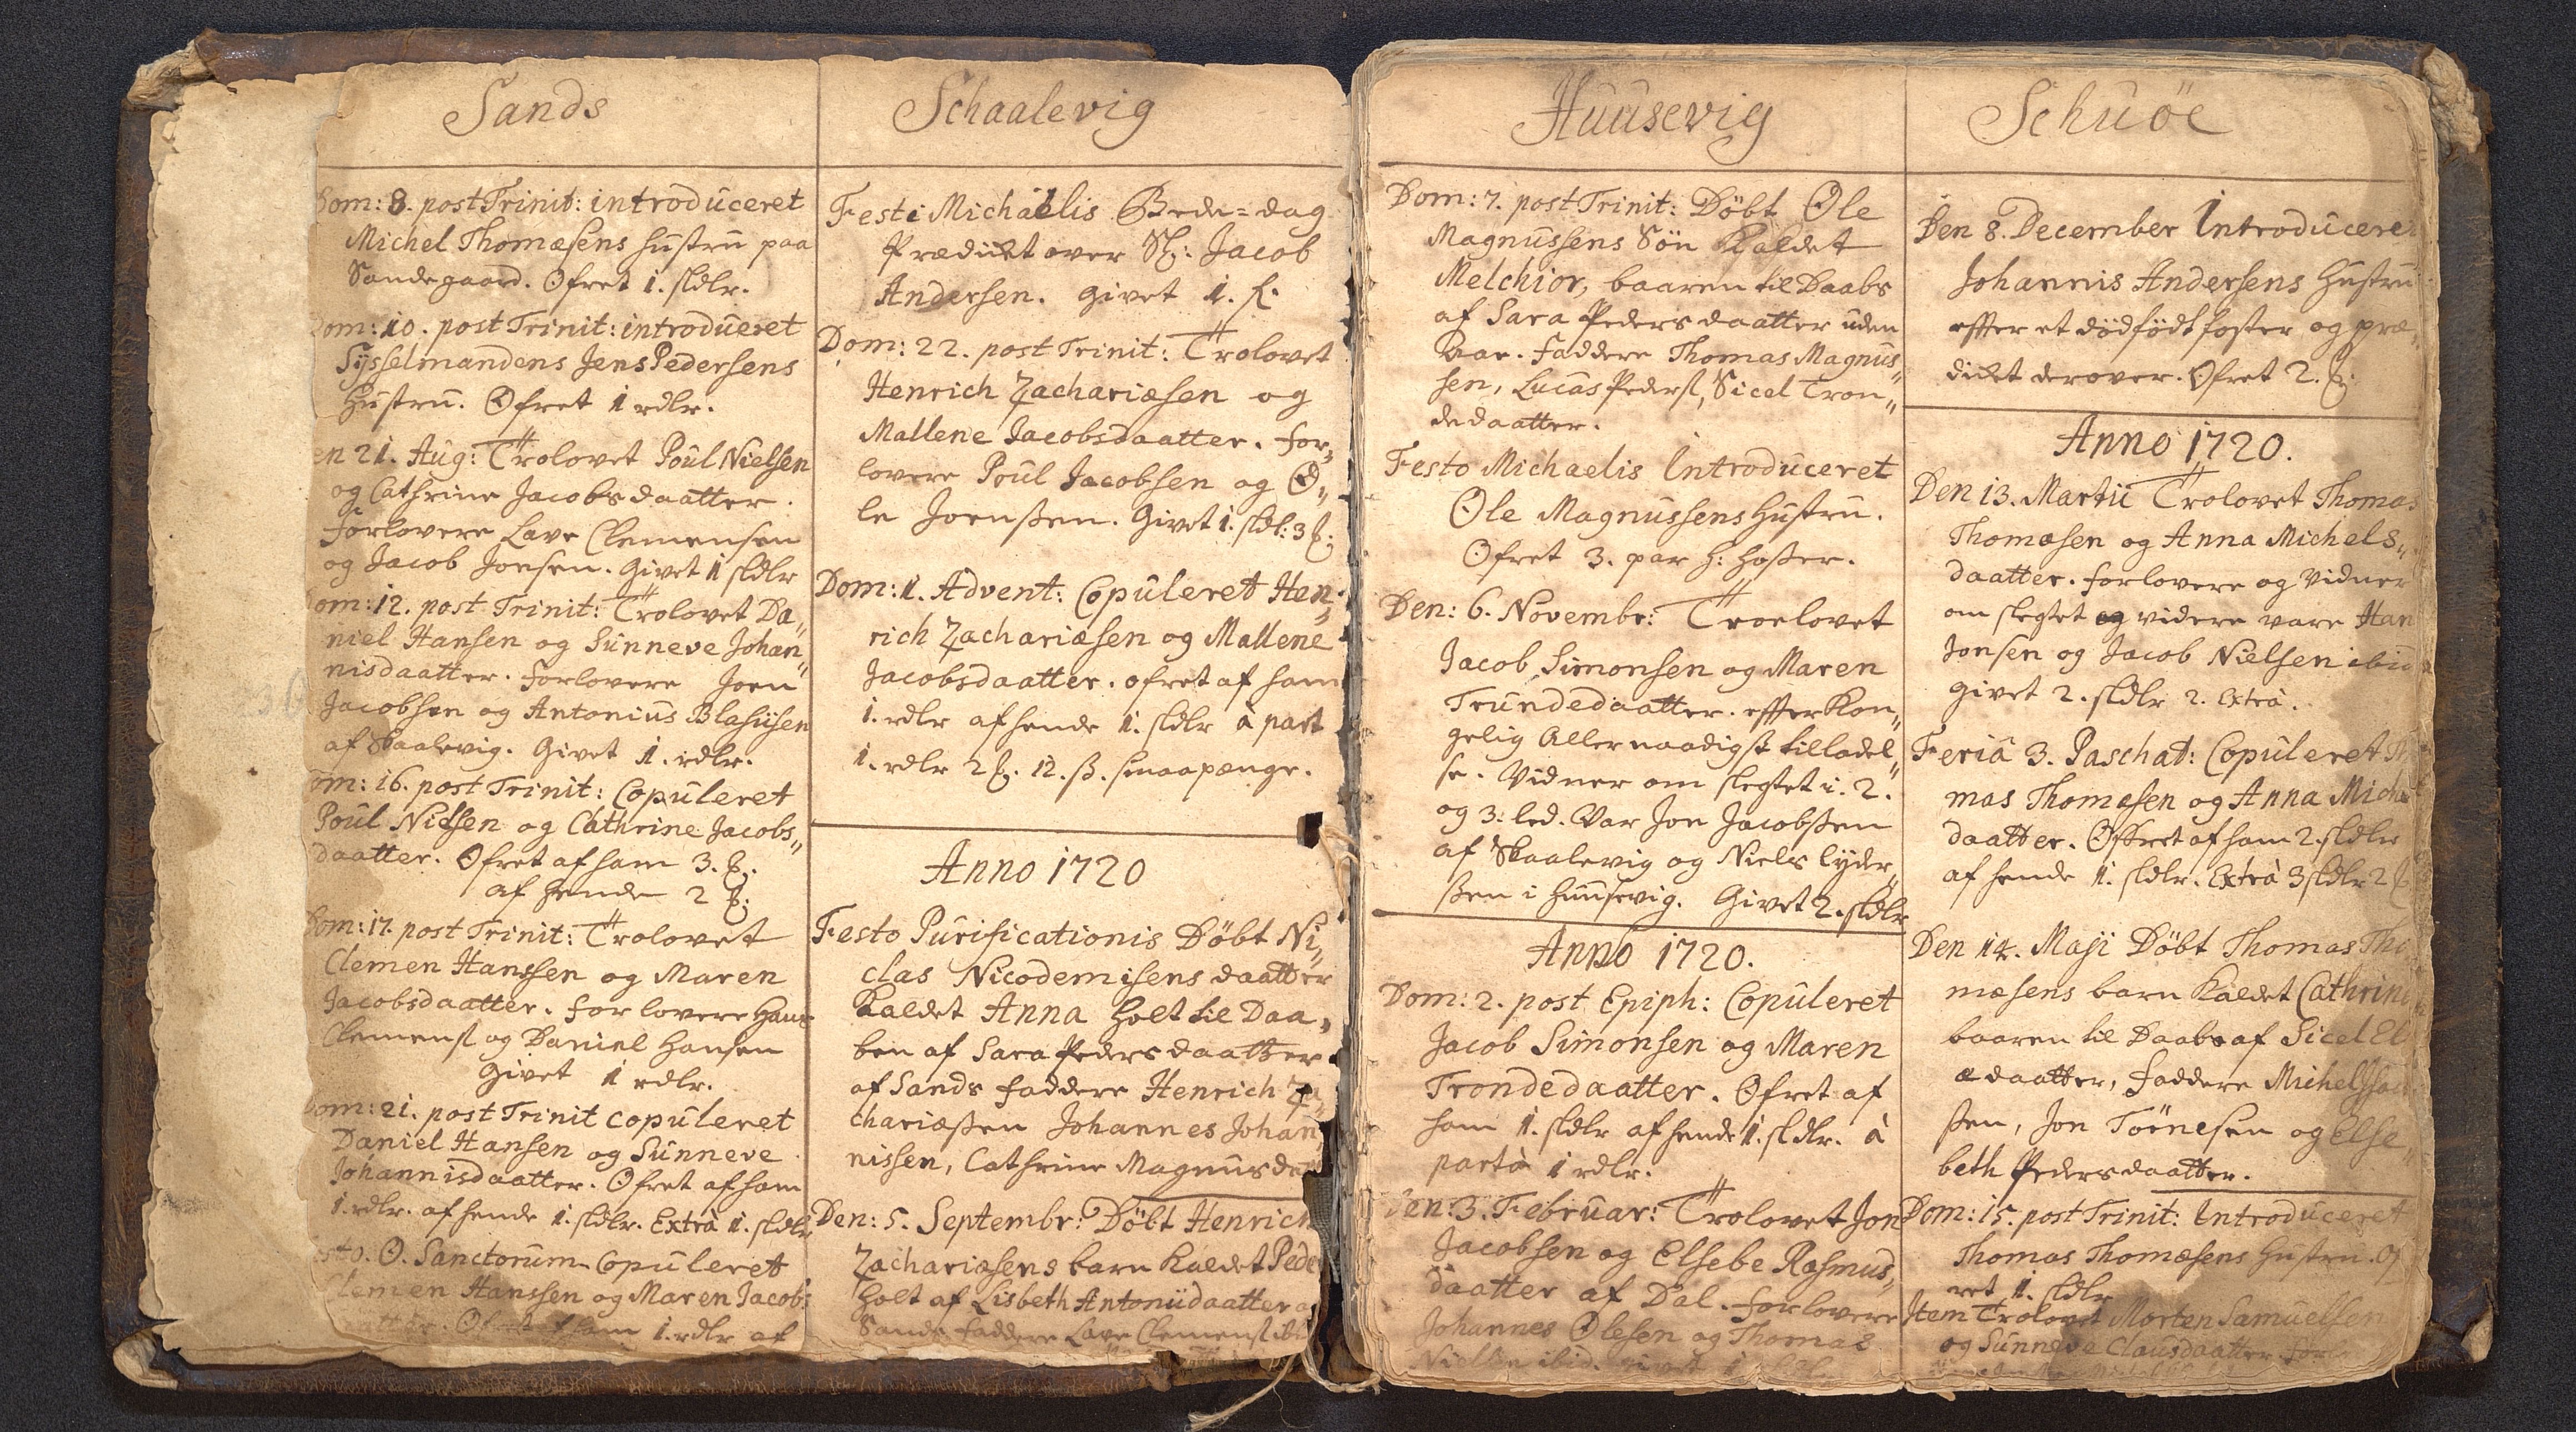 Sands
Dom: 8. post Trinit: introduceret
Michel Thomæsens hustru paa
Sandegaard. Ofret 1. sldlr.
Dom: 10. post Trinit: introduceret
Sysselmandens Jens Pedersens
Hustru. Ofret 1 rdlr.
en 21. Aug: Trolovet Poul Nielsen
og Cathrine Jacobsdaatter.
Forlovere Lave Clemensen
og Jacob Joensen. Givet 1 sldlr
Dom: 12. post Trinit: Trolovet Da„
niel Hansen og Sunneve Johan„
nisdaatter. Forlovere Joen
Jacobsen og Antonius Blasiisen
af Skaalevig. Givet 1. rdlr.
om: 16. post Trinit: Copuleret
Poul Nielsen og Cathrine Jacobs„
daatter. Ofret af ham 3.
af hende 2
Dom: 17. post Trinit: Trolovet
Clemen Hanssen og Maren
Jacobsdaatter. Forlovere Hans
Clemens og Daniel Hansen
Givet 1 rdlr.
om: 21. post Trinit copuleret
Daniel Hansen og Sunneve
Johannisdaatter. Ofret af ham
1. rdlr. af hende 1. sldlr. Extrà 1. sldlr
sto. O. Sanctorum Copuleret
Clemen Hanssen og Maren Jacobs
Ofret af ham 1. rdlr af
Schaalevig
Festi Michaëlis Bede=dag
Prædiket over Sl: Jacob
Andersen. Givet 1.
Dom: 22. post Trinit: Trolovet
Henrich Zachariæsen og
Mallene Jacobsdaatter. For„
lovere Poul Jacobsen og O„
le Joensen. Givet 1. sldl: 3
Dom: 1. Advent: Copuleret Hen„
rich Zachariæsen og Mallene
Jacobsdaatter. ofret af ham
1. rdlr af hende 1. sldlr à part
1. rdlr 2 12. ß. smaapenge.
Anno 1720
Festo Purificationis Döbt Ni„
clas Nicodemisens daatter
Kaldet Anna holt til Daa„
ben af Sara Pedersdaatter
af Sands Faddere Henrich Za„
chariæsen Johannes Johan„
nissen, Cathrine Magnus
Den: 5. Septembr: Döbt Henrich
Zachariæsens barn Kaldet Pede
holt af Lisbeth Antoniidaatter
Sands Faddere Lave Clemens
Huusevig
Dom: 7. post Trinit: Döbt Ole
Magnussens Sön Kaldet
Melchior, baaren til Daabs
af Sara Pedersdaatter uden
Faddere Thomas Magnus„
sen, Lucas Peders, Sicel Tron„
dedaatter.
Festo Michaelis Introduceret
Ole Magnussens Hustru.
Ofret 3. par h: hoser.
Den: 6. Novembr: Troelovet
Jacob Simonsen og Maren
Trundedaatter. effter Kon„
gelig Allernaadigst tilladel„
se. Vidner om slegtet i. 2.
og 3: led. Var Jon Jacobsen
af Skaalevig og Niels lyder„
sen i Huusevig. Givet 2. sldlr
Anno 1720.
Dom: 2. post Epiph: Copuleret
Jacob Simonsen og Maren
Trondedaatter. Ofret af
ham 1. sldlr af hende 1. sldlr. à
parta 1 rdlr.
Den: 3. Februar: Trolovet Jon
Jacobsen og Elsebe Rasmus„
daatter af Dal. Forlovere
Johannes Olesen og Thomas
Nielsen ibid.
Schuöe
Den 8. December Introduceret
Johannis Andersens Hustru
effter et dödfödt foster og præ„
diket derover. Ofret 2.
Anno 1720.
Den 13. Martii Trolovet Thomas
Thomæsen og Anna Michels„
daatter. Forlovere og Vidner
om slegtet og videre vare Han
Jonsen og Jacob Nielsen ibid
Givet 2. sldlr 2. Extrà.
Feriâ 3. Paschat: Copuleret Th
mas Thomæsen og Anna Mich
daatter. Offret af ham 2. sldlr
af hende 1. sldlr. Extrà 3 sldlr 2
Den 14. Maji Döbt Thomas Tho
mæsens barn Kaldet Cathrin
baaren til Daabs af Sicel El
ædaatter, Faddere Michel
sen, Jon Törnesen og Else„
beth Pedersdaatter.
Dom: 15. post Trinit: Introduceret
Thomas Thomæsens Hustru. Of
ret 1. sldlr
Item Trolovet Morten Samuelsen
og Sunneve Clausdaatter.